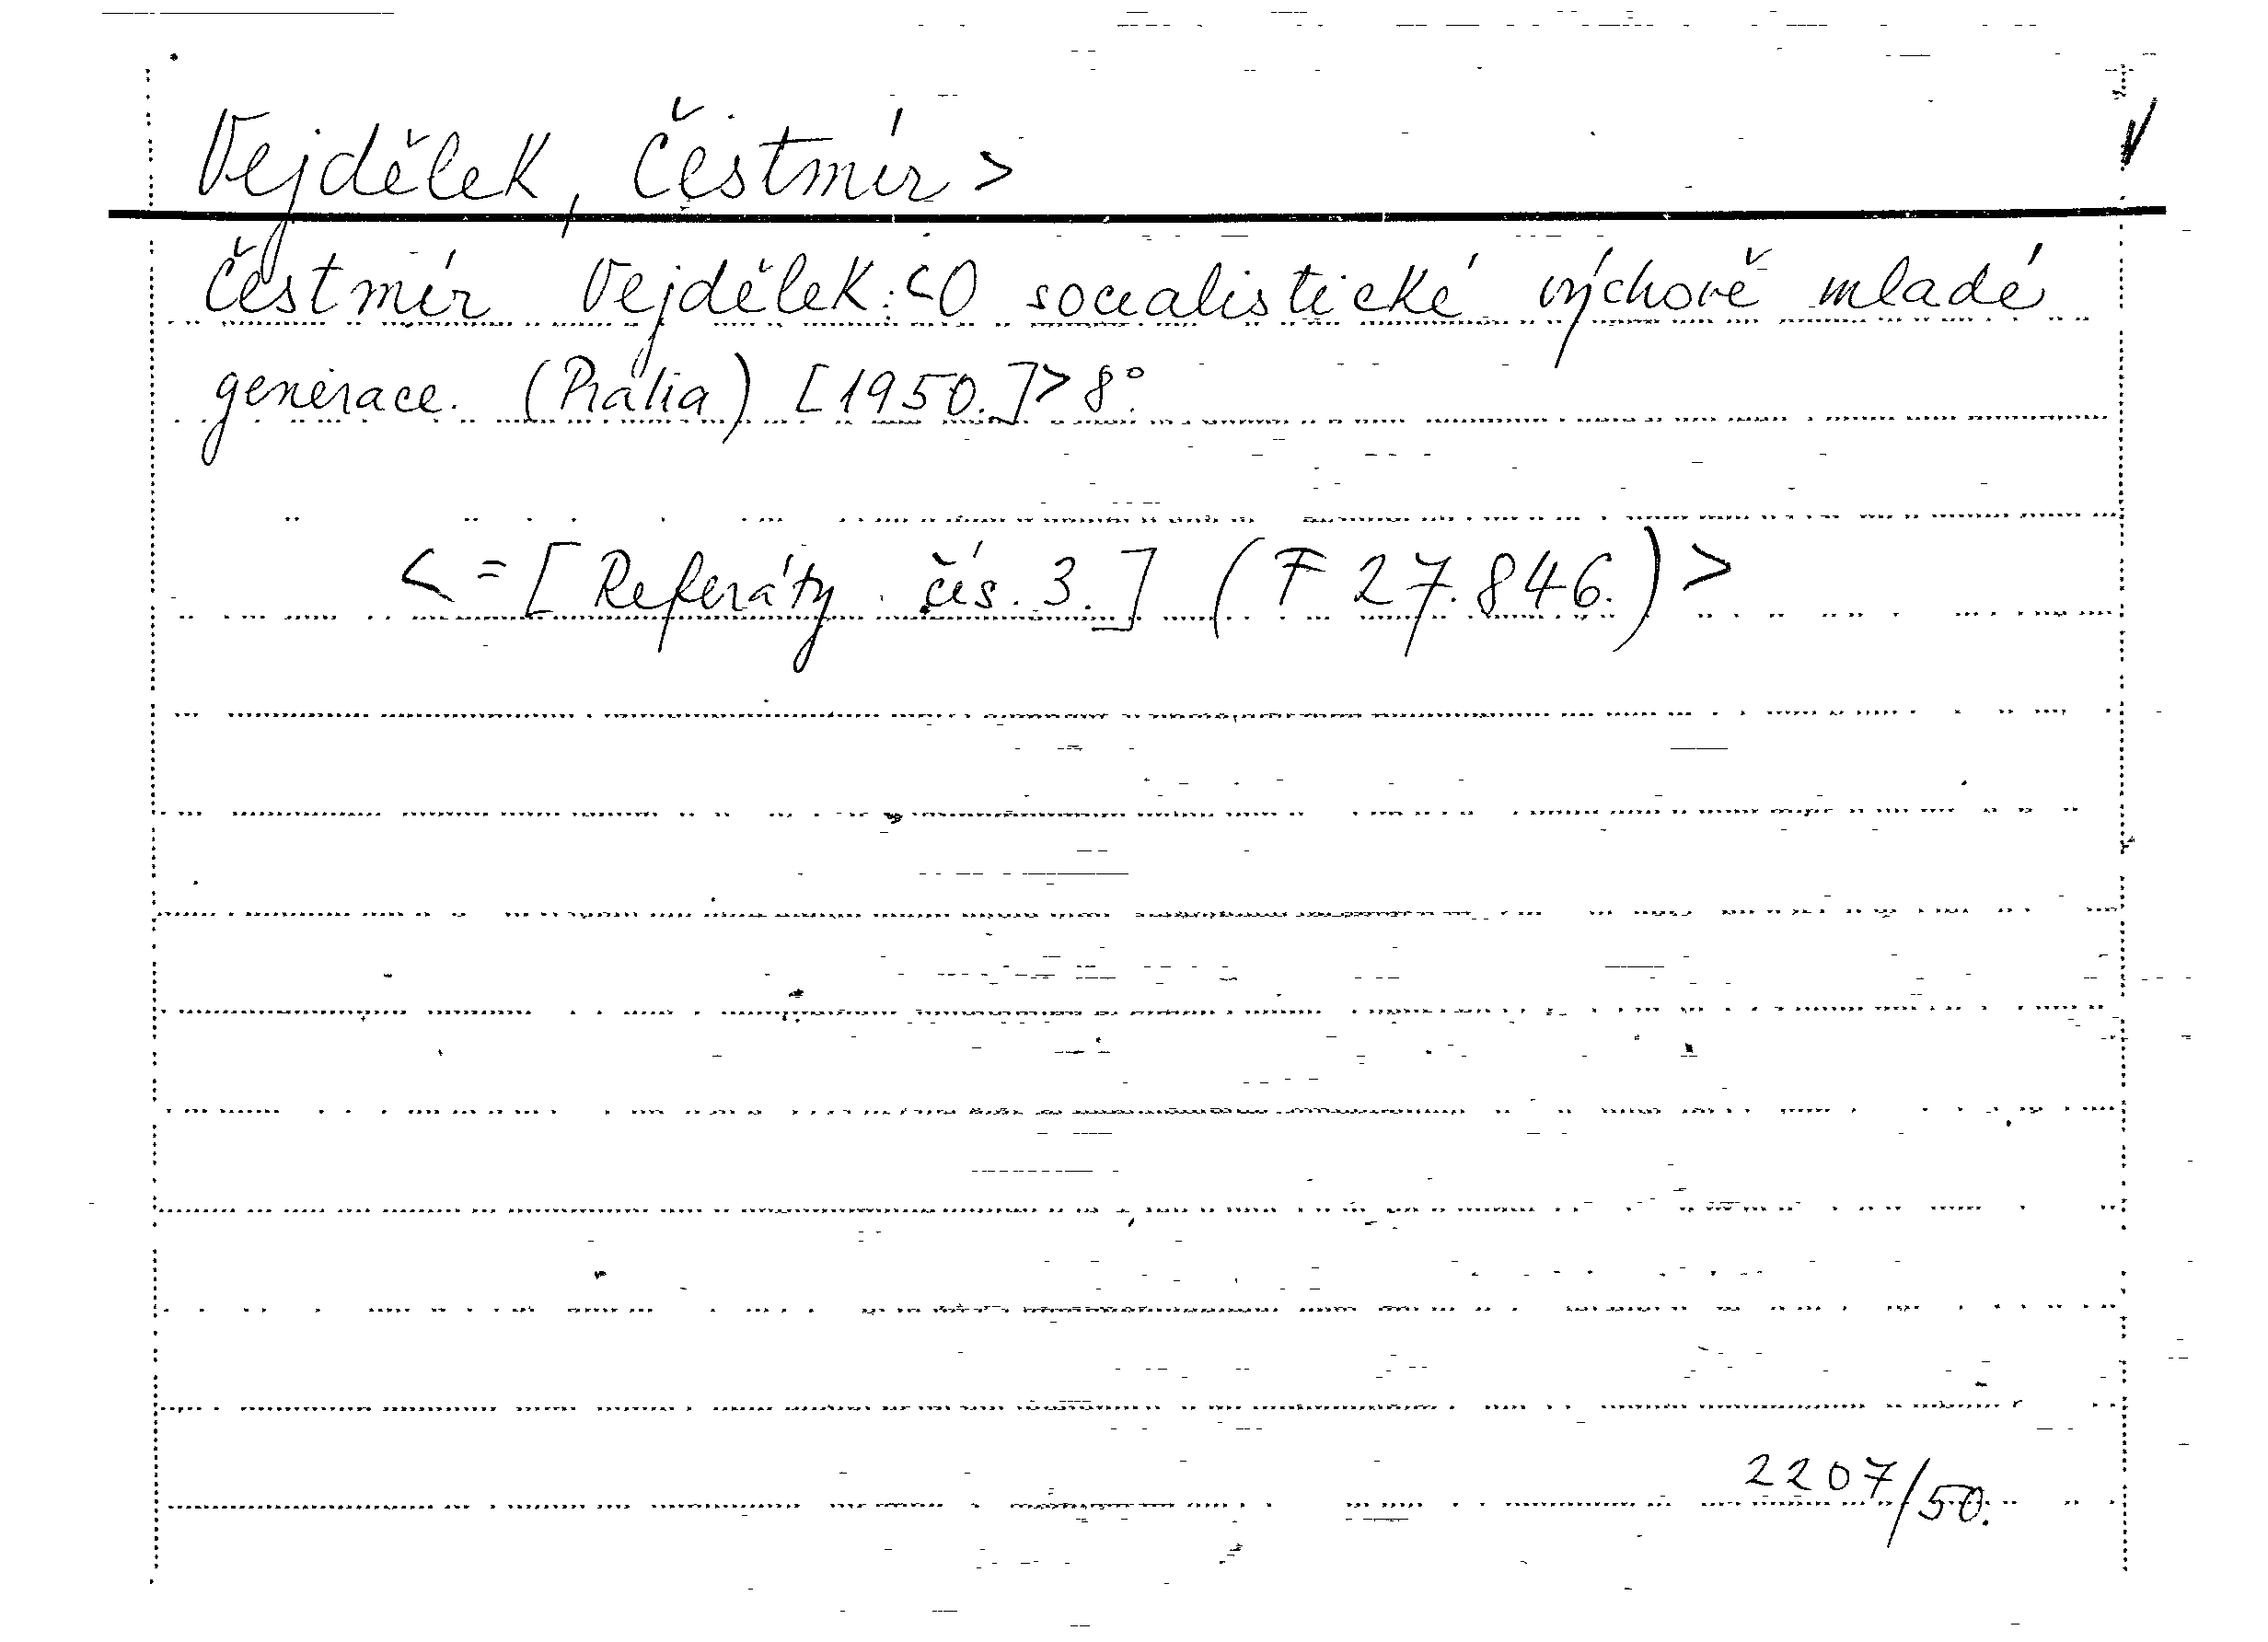 Vejdělek, Čestmír >
Čestmír Vejdělek: <O socialistické výchově mladé
generace. (Praha) [1950.]> 8°.
< = [Referáty. čís. 3.] (F 27.846.) >
2207/50.